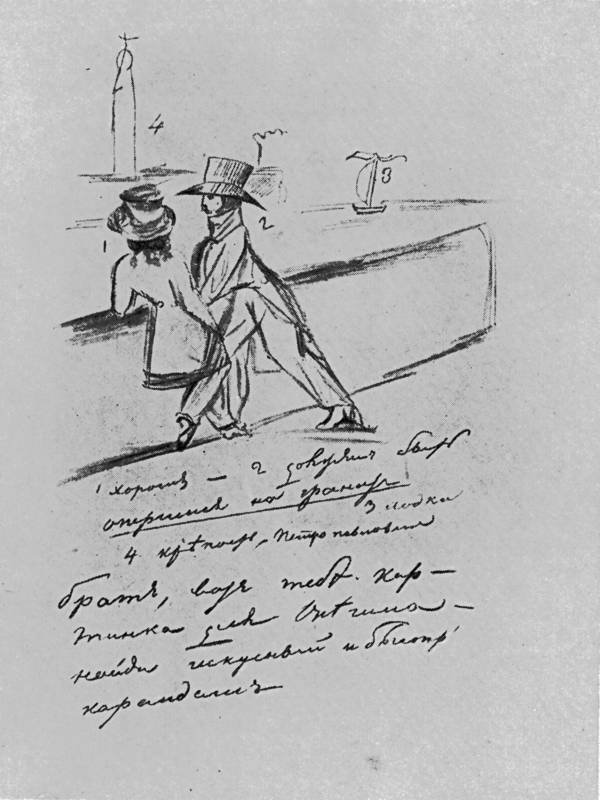 4
3
2
1
1 хорошъ — 2 долженъ быть
опершися на гранитъ
3 лодка
4 крѣпость, Петропавловская
братъ, вотъ тебѣ кар—
тинка для Онѣгина —
найди искусный и быстр
карандашъ